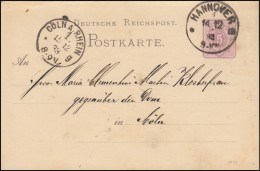 DEUTSCHE REICHSPOST.
POSTKARTE.
HANNOVER
CÖLN A. RHEIN
An
Frau Maria Clementine Martin Klosterfrau
gegenüber dem Dom
in Köln